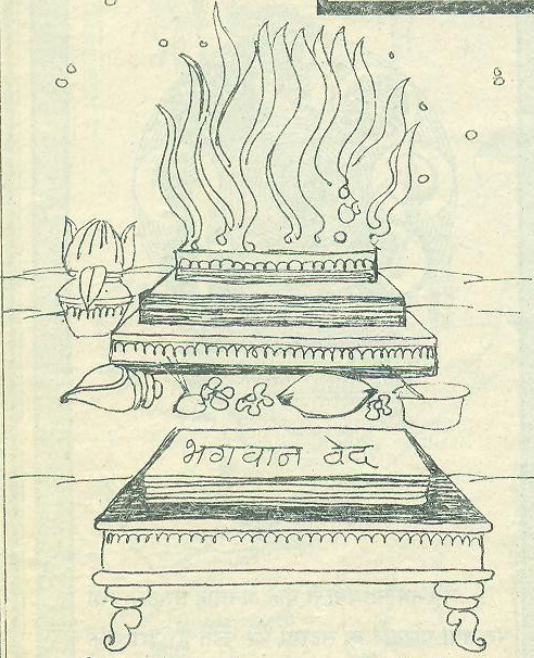 भगवान वेद